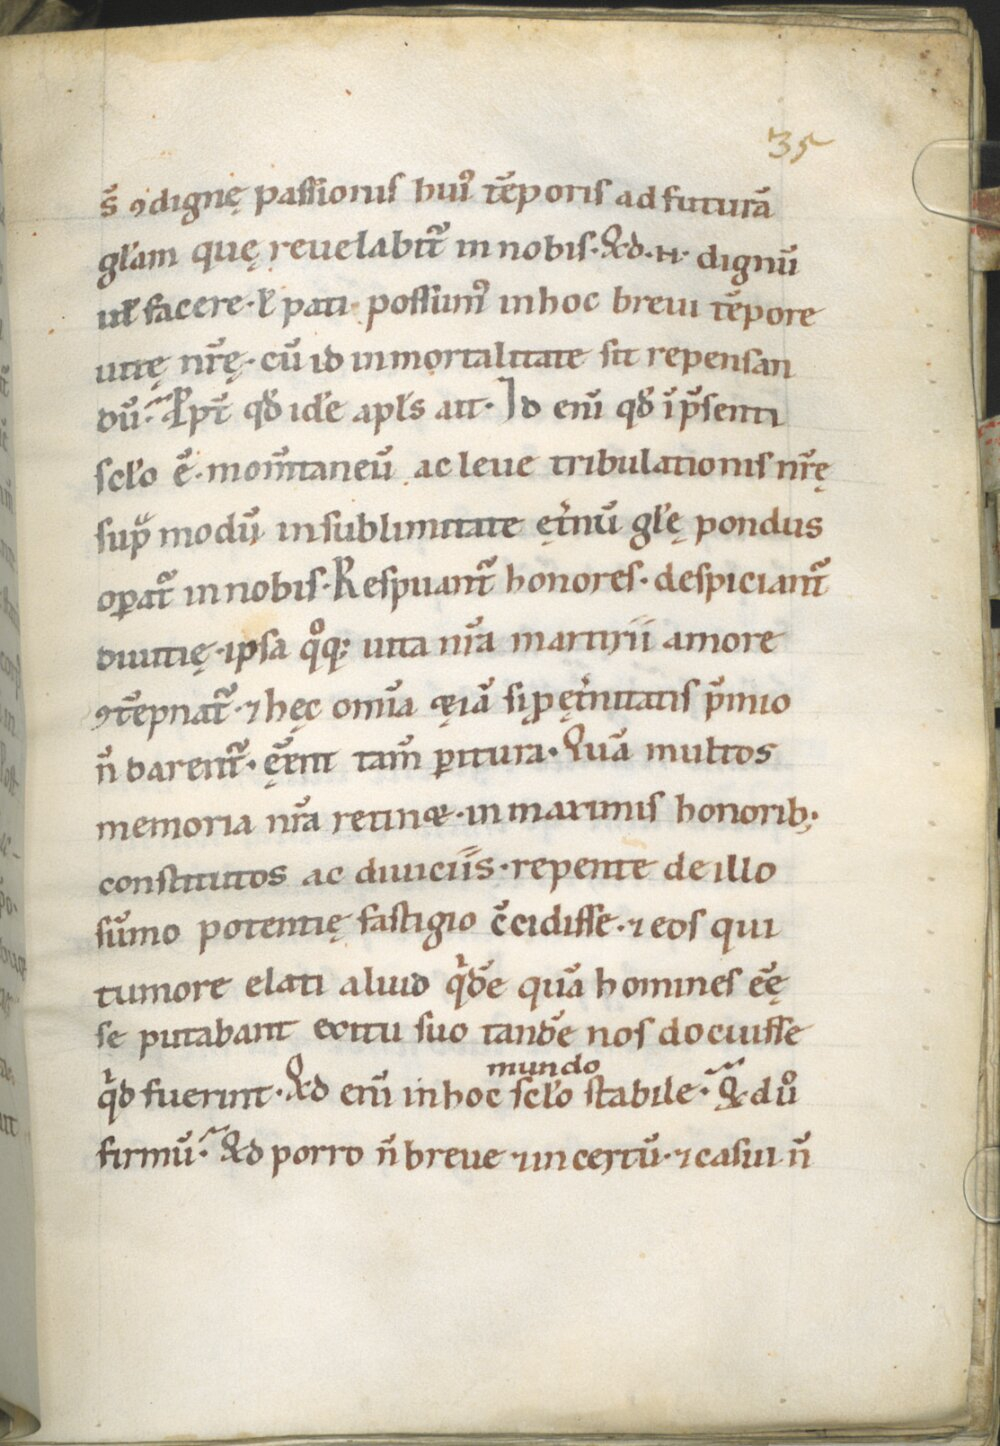 35
s̄ ꝯdignę passionis hui᷒ tēporis ad futurā
gl̄am quę reuelabit᷑ in nobis· Qd·n̄· dignū
ul̄ facere· ł pati possum᷒ in hoc breui tēpore
uitę nr̄ę· cū id inmortalitate sit repensan
dū· Ppt̄ qđ idē apl̄s ait· Id eni̅ qđ i̅ p̄senti
scl̄o ē· mom̄taneū ac leue tribulationis nr̄ę
supͣ modū in sublimitate ęt̄nū gl̄ę pondus
oꝑat᷑ in nobis· Respuant᷑ honores· despiciant᷑
diuitię· ipsa qͦq; uita nr̄a martirii amore
ꝯtēpnat᷑· ⁊ hęc om̅ia ęiā si ꝓ ęt̄nitatis p̄mio
n̄ darent᷑· ęēnt tam̄ ꝑitura· Quā multos
memoria nr̄a retin&· in maximis honorib;
constitutos ac diuiciis· repente de illo
sūmo potentię fastigio c̄cidisse· ⁊ eos qui
tumore elati aliud qͥdē quā homines eę̄
se putabant exitu suo tandē nos docuisse
qͥd fuerint· Qd eni̅ in hoc scl̄o stabile· Q& duͦ
mundo
firmū· Qd porro n̄ breue· incertū· ⁊ casui n̄